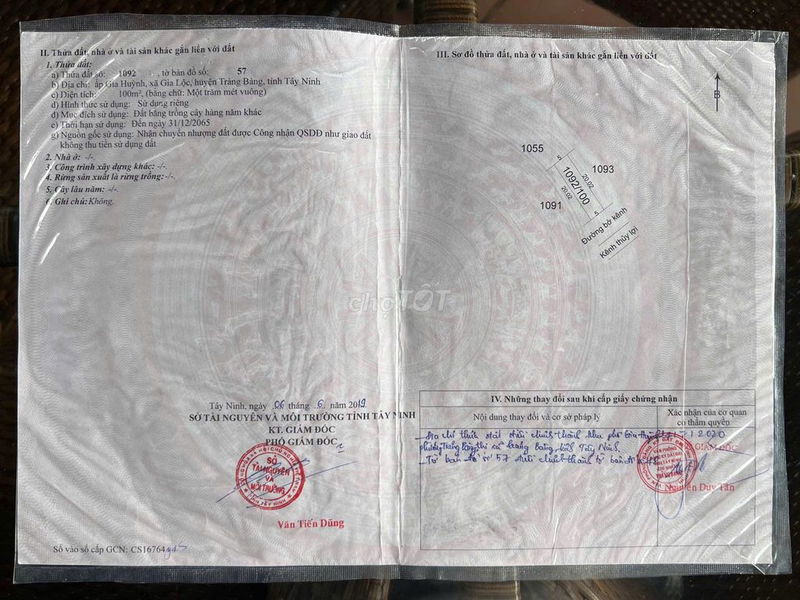 II. Thửa đất, nhà ở và tài sản khác gắn liền với đất
1. Thửa đất:
a) Thửa đất số: 1092 , tờ bản đồ số: 57
b) Địa chỉ: ấp Gia Huỳnh, xã Gia Lộc, huyện Trảng Bàng, tỉnh Tây Ninh
c) Diện tích: 100m², (bằng chữ: Một trăm mét vuông)
d) Hình thức sử dụng: Sử dụng riêng
đ) Mục đích sử dụng: Đất bằng trồng cây hàng năm khác
e) Thời hạn sử dụng: Đến ngày 31/12/2065
g) Nguồn gốc sử dụng: Nhận chuyển nhượng đất được Công nhận QSDĐ như giao đất
không thu tiền sử dụng đất
2. Nhà ở: -/-
3. Công trình xây dựng khác: -/-
4. Rừng sản xuất là rừng trồng: -/-
5. Cây lâu năm: -/-
6. Ghi chú: Không.
Tây Ninh, ngày 06 tháng 6 năm 2019
SỞ TÀI NGUYÊN VÀ MÔI TRƯỜNG TỈNH TÂY NINH
KT. GIÁM ĐỐC
PHÓ GIÁM ĐỐC
SỞ
TÀI NGUYÊN
VÀ
MÔI TRƯỜNG
Văn Tiến Dũng
Số vào sổ cấp GCN: CS16764
III. Sơ đồ thửa đất, nhà ở và tài sản khác gắn liền với đất
B
1055
1093
5
20.02
1092/100
20.02
5
1091
Đường bờ kênh
Kênh thủy lợi
chợTỐT
IV. Những thay đổi sau khi cấp giấy chứng nhận
Nội dung thay đổi và cơ sở pháp lý
Xác nhận của cơ quan
có thẩm quyền
Địa chỉ thửa đất điều chỉnh thành khu phố Gia Huỳnh 2020
phường thị xã Trảng Bàng tỉnh Tây Ninh.
Tờ bản đồ số 57 điều chỉnh thành tờ bản đồ số
GIÁM ĐỐC
Nguyễn Duy Tân